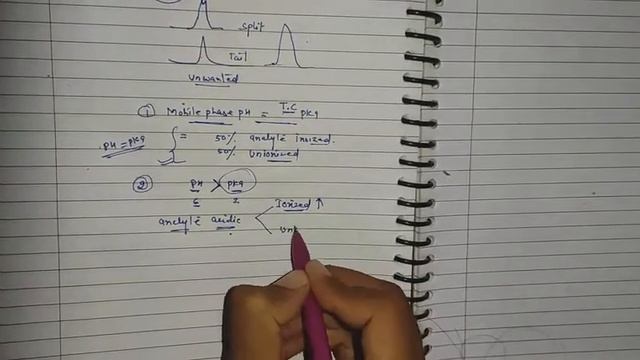 split
Tail
unwanted
① Mobile phase pH = T.C pKa
pH = pKa { = 50% analyte ionized.
50% unionized
② pH > pKa
6 2
analyte acidic < Ionized ↑
un